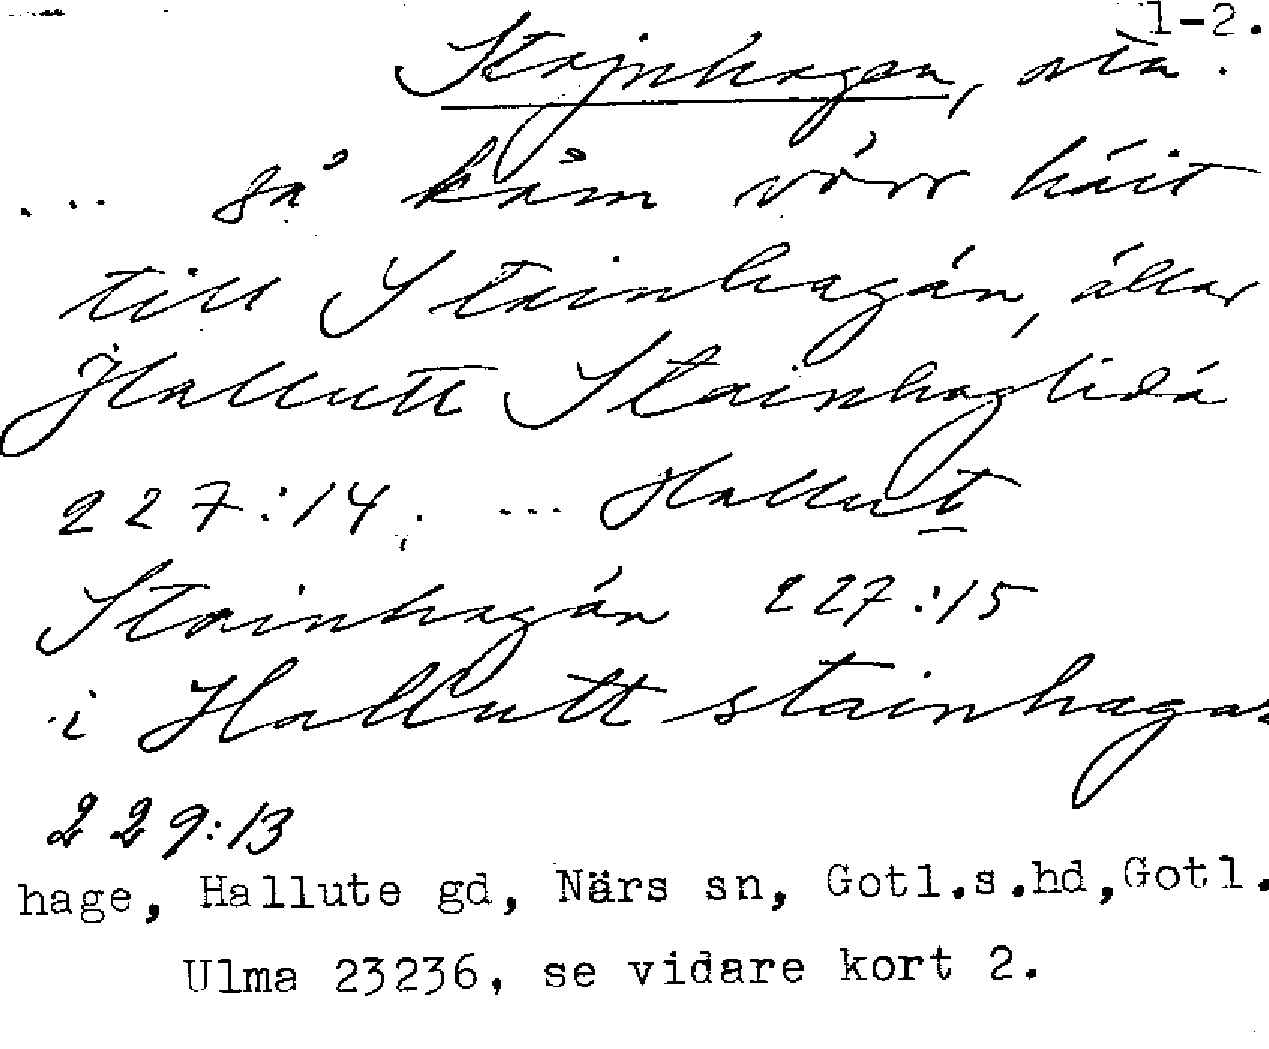 1-2.
Stajnhagen, ortn.
... så kåm vórr háit
till Stainhagán, állar
Hallutt Stainhaglidá
227:14; ... Hallut
Stainhagán 227:15
i Hallutt stainhagas
229:13
hage, Hallute gd, Närs sn, Gotl.s.hd,Gotl.
Ulma 23236, se vidare kort 2.